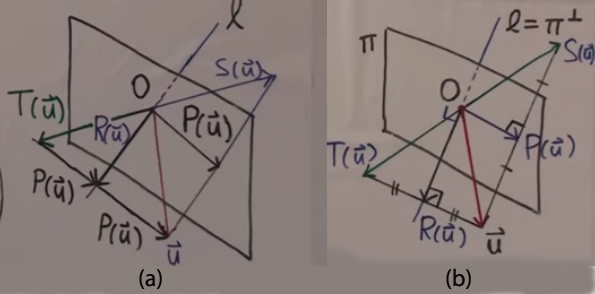 ℓ
O
S(u⃗)
T(u⃗)
R(u⃗)
P(u⃗)
P(u⃗)
P(u⃗)
u⃗
(a)
ℓ = π^⊥
π
S(u⃗)
O
P(u⃗)
T(u⃗)
R(u⃗)
u⃗
(b)